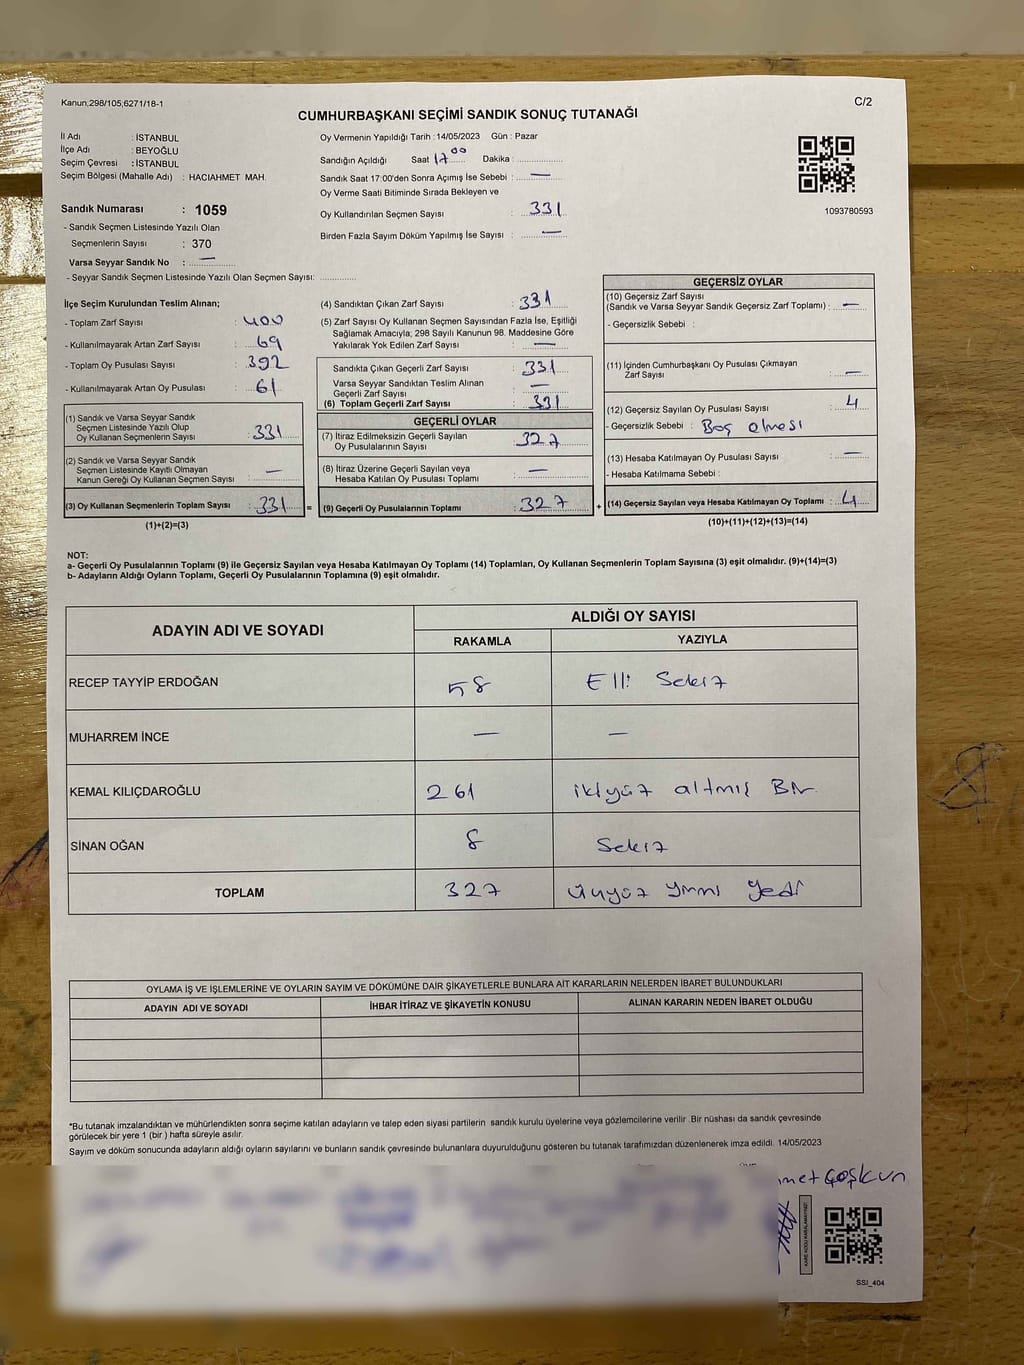 Kanun,298/105;6271/18-1
C/2
CUMHURBAŞKANI SEÇİMİ SANDIK SONUÇ TUTANAĞI
İl Adı : İSTANBUL
İlçe Adı : BEYOĞLU
Seçim Çevresi : İSTANBUL
Seçim Bölgesi (Mahalle Adı) : HACIAHMET MAH.
Sandık Numarası : 1059
- Sandık Seçmen Listesinde Yazılı Olan
Seçmenlerin Sayısı : 370
Varsa Seyyar Sandık No : —
- Seyyar Sandık Seçmen Listesinde Yazılı Olan Seçmen Sayısı:
Oy Vermenin Yapıldığı Tarih : 14/05/2023 Gün : Pazar
Sandığın Açıldığı Saat 17 00 Dakika :
Sandık Saat 17:00'den Sonra Açımış İse Sebebi : —
Oy Verme Saati Bitiminde Sırada Bekleyen ve
Oy Kullandırılan Seçmen Sayısı : 331
Birden Fazla Sayım Döküm Yapılmış İse Sayısı : —
1093780593
İlçe Seçim Kurulundan Teslim Alınan;
- Toplam Zarf Sayısı : 400
- Kullanılmayarak Artan Zarf Sayısı : 69
- Toplam Oy Pusulası Sayısı : 392
- Kullanılmayarak Artan Oy Pusulası : 61
(1) Sandık ve Varsa Seyyar Sandık
Seçmen Listesinde Yazılı Olup
Oy Kullanan Seçmenlerin Sayısı : 331
(2) Sandık ve Varsa Seyyar Sandık
Seçmen Listesinde Kayıtlı Olmayan
Kanun Gereği Oy Kullanan Seçmen Sayısı : —
(3) Oy Kullanan Seçmenlerin Toplam Sayısı : 331 =
(1)+(2)=(3)
(4) Sandıktan Çıkan Zarf Sayısı : 331
(5) Zarf Sayısı Oy Kullanan Seçmen Sayısından Fazla İse, Eşitliği
Sağlamak Amacıyla; 298 Sayılı Kanunun 98. Maddesine Göre
Yakılarak Yok Edilen Zarf Sayısı : —
Sandıkta Çıkan Geçerli Zarf Sayısı : 331
Varsa Seyyar Sandıktan Teslim Alınan
Geçerli Zarf Sayısı : —
(6) Toplam Geçerli Zarf Sayısı : 331
GEÇERLİ OYLAR
(7) İtiraz Edilmeksizin Geçerli Sayılan
Oy Pusulalarının Sayısı : 327
(8) İtiraz Üzerine Geçerli Sayılan veya
Hesaba Katılan Oy Pusulası Toplamı : —
(9) Geçerli Oy Pusulalarının Toplamı : 327 +
GEÇERSİZ OYLAR
(10) Geçersiz Zarf Sayısı
(Sandık ve Varsa Seyyar Sandık Geçersiz Zarf Toplamı) : —
- Geçersizlik Sebebi :
(11) İçinden Cumhurbaşkanı Oy Pusulası Çıkmayan
Zarf Sayısı : —
(12) Geçersiz Sayılan Oy Pusulası Sayısı : 4
- Geçersizlik Sebebi : Boş olması
(13) Hesaba Katılmayan Oy Pusulası Sayısı : —
- Hesaba Katılmama Sebebi :
(14) Geçersiz Sayılan veya Hesaba Katılmayan Oy Toplamı : 4
(10)+(11)+(12)+(13)=(14)
NOT:
a- Geçerli Oy Pusulalarının Toplamı (9) ile Geçersiz Sayılan veya Hesaba Katılmayan Oy Toplamı (14) Toplamları, Oy Kullanan Seçmenlerin Toplam Sayısına (3) eşit olmalıdır. (9)+(14)=(3)
b- Adayların Aldığı Oyların Toplamı, Geçerli Oy Pusulalarının Toplamına (9) eşit olmalıdır.
ADAYIN ADI VE SOYADI
ALDIĞI OY SAYISI
RAKAMLA YAZIYLA
RECEP TAYYİP ERDOĞAN 58 Elli Sekiz
MUHARREM İNCE — —
KEMAL KILIÇDAROĞLU 261 ikiyüz altmış Bir
SİNAN OĞAN 8 Sekiz
TOPLAM 327 Üçyüz yirmi yedi
OYLAMA İŞ VE İŞLEMLERİNE VE OYLARIN SAYIM VE DÖKÜMÜNE DAİR ŞİKAYETLERLE BUNLARA AİT KARARLARIN NELERDEN İBARET BULUNDUKLARI
ADAYIN ADI VE SOYADI İHBAR İTİRAZ VE ŞİKAYETİN KONUSU ALINAN KARARIN NEDEN İBARET OLDUĞU
*Bu tutanak imzalandıktan ve mühürlendikten sonra seçime katılan adayların ve talep eden siyasi partilerin sandık kurulu üyelerine veya gözlemcilerine verilir .Bir nüshası da sandık çevresinde
görülecek bir yere 1 (bir ) hafta süreyle asılır.
Sayım ve döküm sonucunda adayların aldığı oyların sayılarını ve bunların sandık çevresinde bulunanlara duyurulduğunu gösteren bu tutanak tarafımızdan düzenlenerek imza edildi. 14/05/2023
met Coşkun
SSI_404